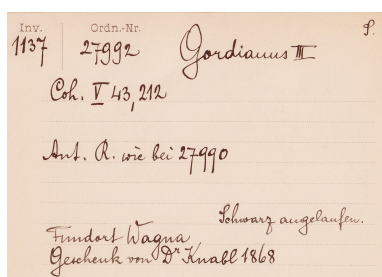 Inv. Ordn.-Nr. S.
1137 27992 Gordianus III
Coh. V 43, 212
Ant. R. wie bei 27990
Schwarz angelaufen.
Fundort Wagna
Geschenk von Dr Knabl 1868